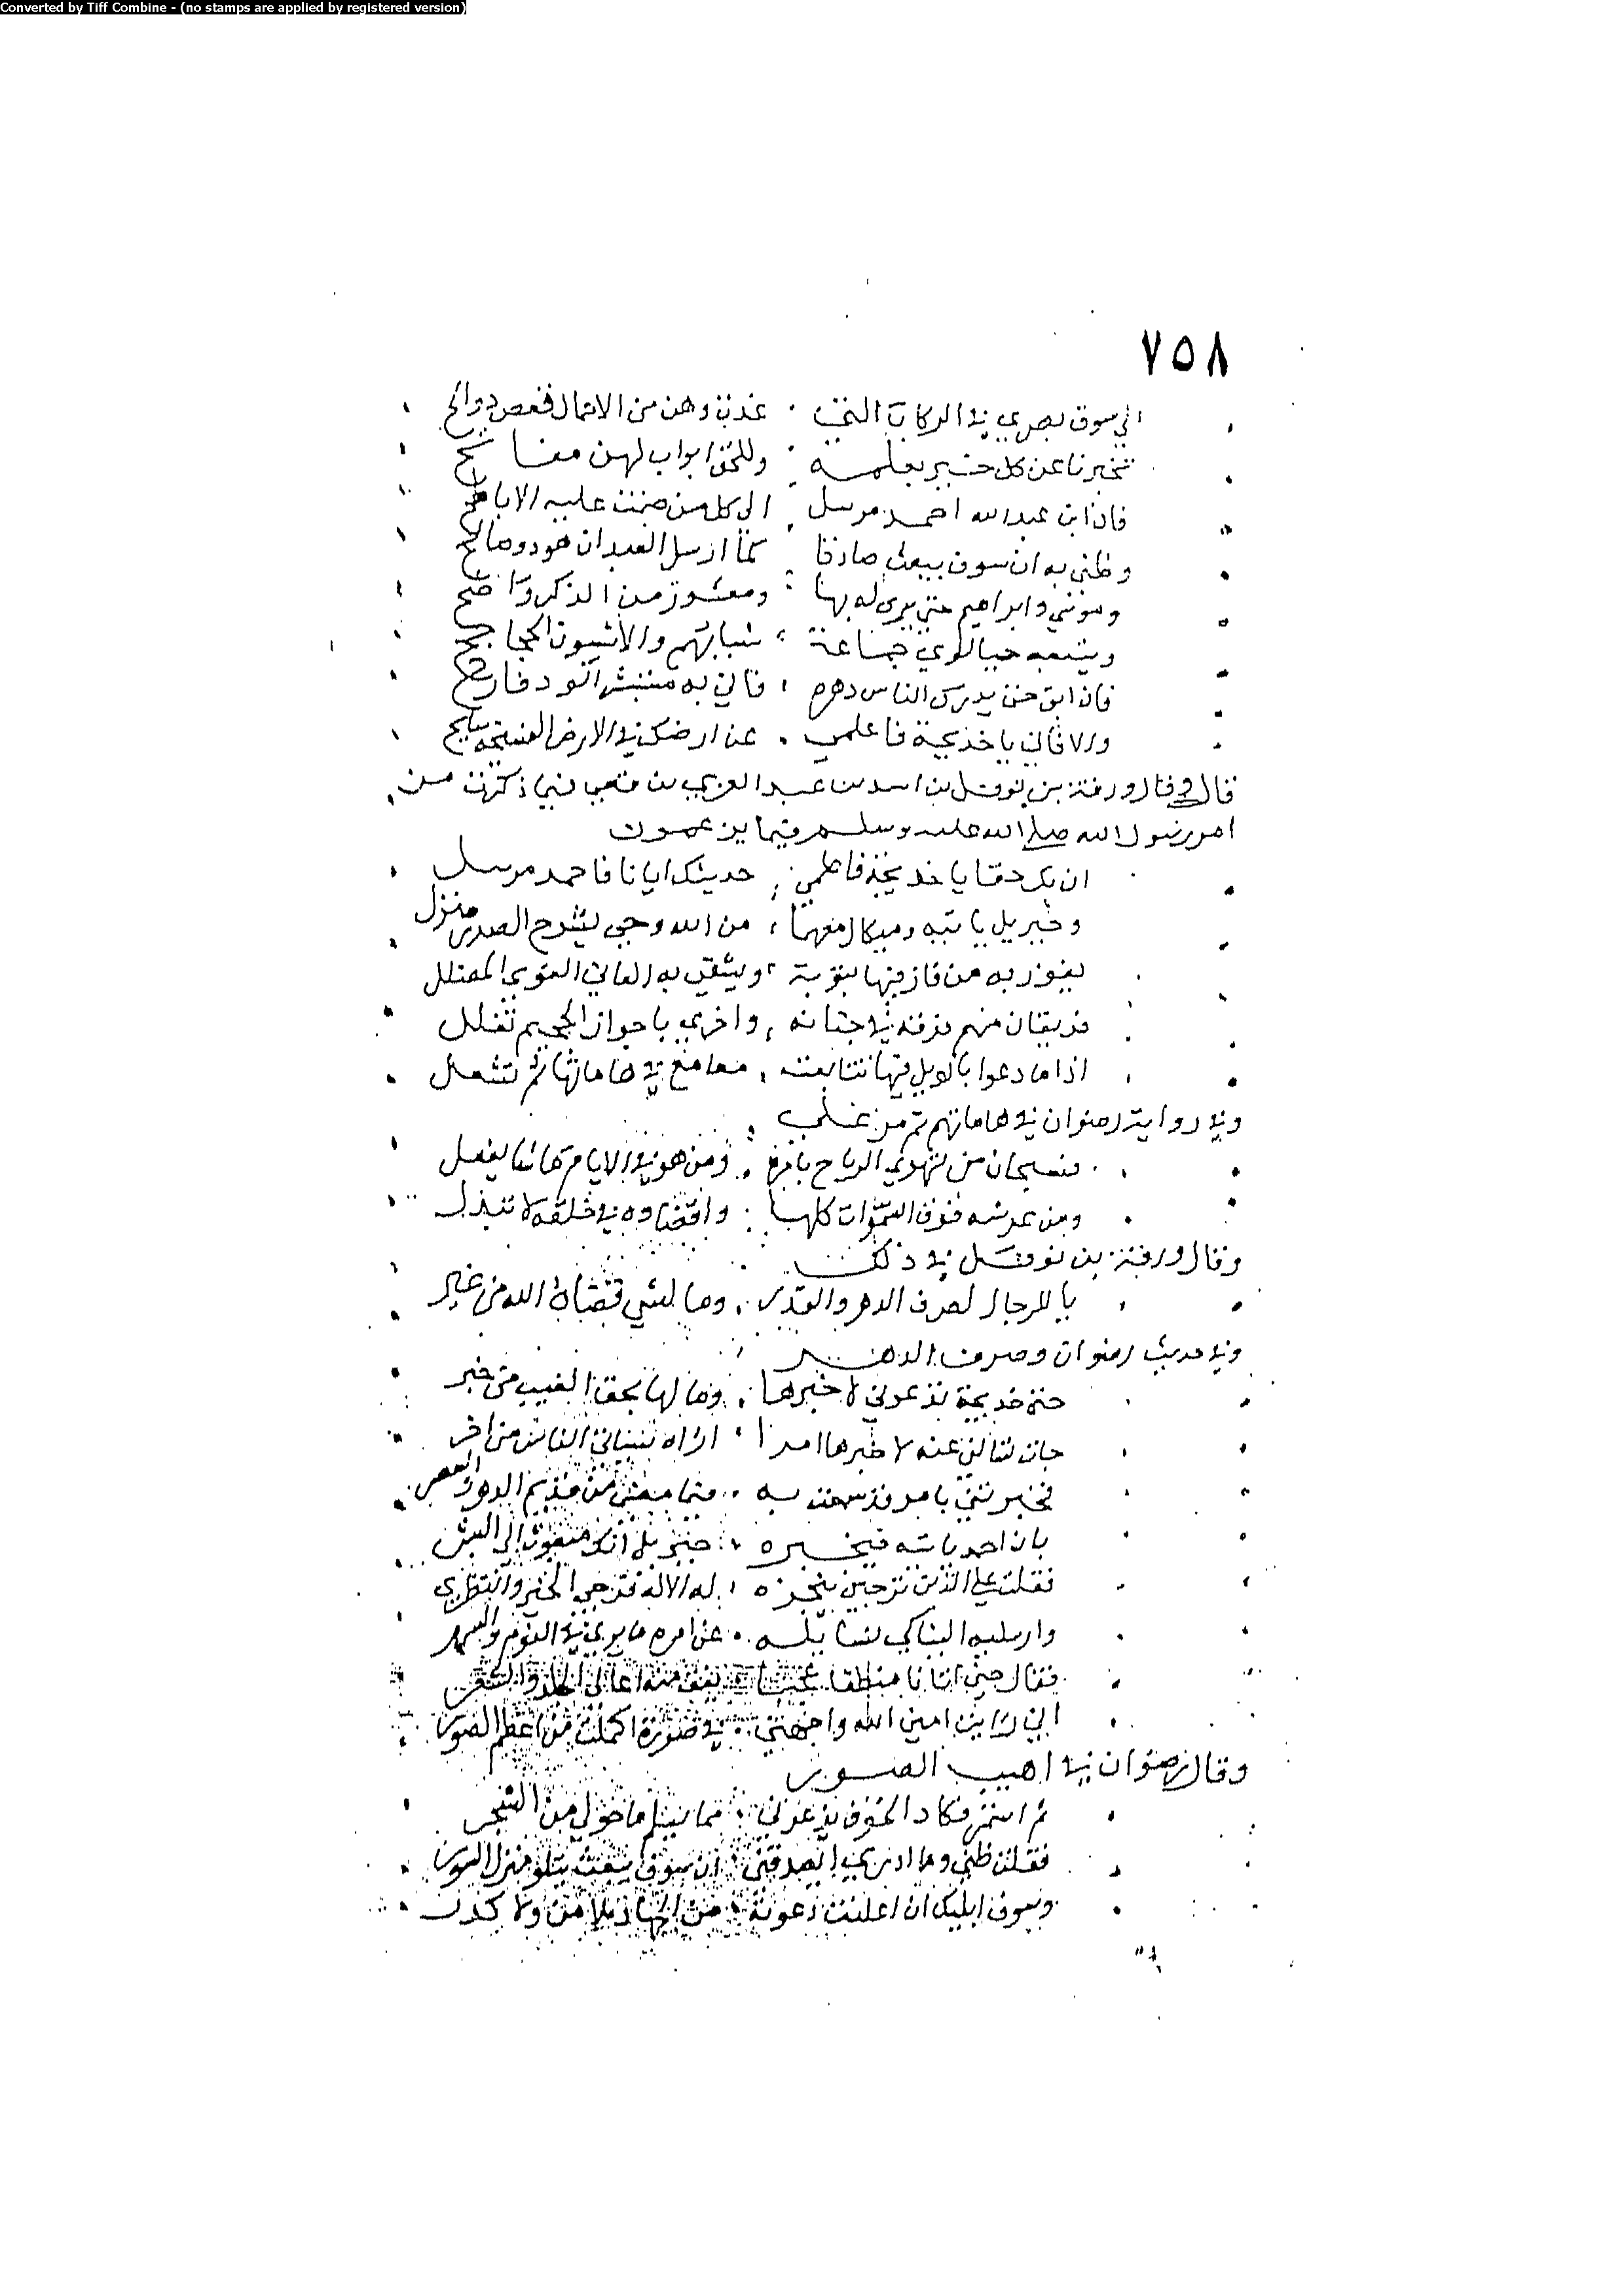 Converted by Tiff Combine - (no stamps are applied by registered version)
٧٥٨
الى سوق بصرى في الركاب التى غدت وهن من الاحمال قعص دوالح
تخبرنا عن كل خبر بعلمه وللحق ابواب لهن مفاتيح
فان ابن عبد الله احمد مرسل الى كل من ضمت عليه الاباطح
وظني به ان سوف يبعث صادقا كما ارسل العبدان هود وصالح
وموسى وابراهيم حتى يرى له بها ومنشور من الذكر واضح
ويتبعه حيا لوي جماعة شبابهم والاشيبون الجحاجح
فان ابق حتى يدرك الناس دهره فاني به مستبشر الود فارح
والا فاني يا خديجة فاعلمي عن ارضك في الارض الفسيحة سايح
قال وقال ورقة بن نوفل بن اسد بن عبد العزى بن قصي فيما ذكرت من
امر رسول الله صلى الله عليه وسلم فيما يزعمون
ان يك حقا يا خديجة فاعلمي حديثك ايانا فاحمد مرسل
وجبريل ياتيه وميكال معهما من الله وحي يشرح الصدر منزل
يفوز به من فاز فيها بتوبة ويشقى به العاني الغوي المضلل
فريقان منهم فرقة في جنانه واخرى باجواز الجحيم تغلل
اذا ما دعوا بالويل فيها تتابعت مقامع في هاماتها ثم تشعل
وفي رواية رضوان في هاماتهم ثم من غلي
فسبحان من تهوي الرياح بامره ومن هو في الايام ما شا يفعل
ومن عرشه فوق السموات كلها واقضاوه في خلقه لا تبدل
وقال ورقة بن نوفل في ذلك
يا للرجال لصرف الدهر والقدر وما لشي قضاه الله من غير
وفي حديث رضوان وصرف الدهر
حتى خديجة تدعوني لاخبرها وما لها بخفي الغيب من خبر
جات لتسالني عنه لاخبرها امرا اراه سياتي الناس من اخر
فخبرتني بامر قد سمعت به فيما مضى من قديم الدهر والعصر
بان احمد ياتيه فيخبره جبريل انك مبعوث الى البشر
فقلت عل الذي ترجين ينجزه له الاله فترجي الخير وانتظري
وارسليه الينا كي نسايله عن امره ما يرى في النوم والسهر
فقال حين اتانا منطقا عجبا يقف منه اعالي الجلد والشعر
اني رايت امين الله واجهني في صورة اكملت من اعظم الصور
وقال رضوان في اهيب الصور
ثم استمر فكاد الخوف يذعرني مما يسلم ما حولي من الشجر
فقلت ظني وما ادري ايصدقني ان سوف يبعث يتلو منزل السور
وسوف ابليك ان اعلنت دعوته من الجهاد بلا من ولا كدر